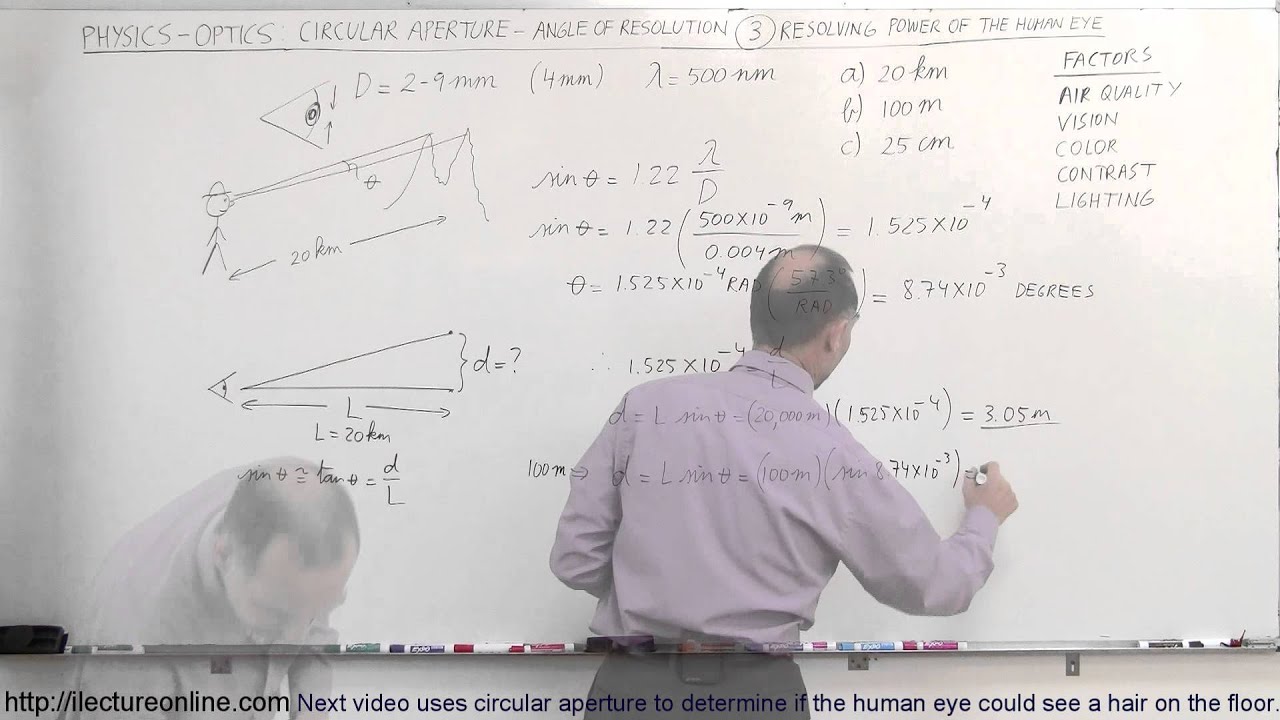 PHYSICS-OPTICS: CIRCULAR APERTURE - ANGLE OF RESOLUTION ③ RESOLVING POWER OF THE HUMAN EYE
D = 2-9mm (4mm) λ = 500 nm
a) 20 km
b) 100 m
c) 25 cm
FACTORS
AIR QUALITY
VISION
COLOR
CONTRAST
LIGHTING
θ
20 km
sin θ = 1.22 λ/D
sin θ = 1.22 (500X10⁻⁹m / 0.004m) = 1.525X10⁻⁴
θ = 1.525X10⁻⁴ RAD (57.3° / RAD) = 8.74X10⁻³ DEGREES
d = ?
L
L = 20km
sin θ ≅ tan θ = d/L
∴ 1.525X10⁻⁴ = d/L
d = L sin θ = (20,000m)(1.525X10⁻⁴) = 3.05m
100m ⇒ d = L sin θ = (100m)(sin 8.74X10⁻³) =
http://ilectureonline.com Next video uses circular aperture to determine if the human eye could see a hair on the floor.